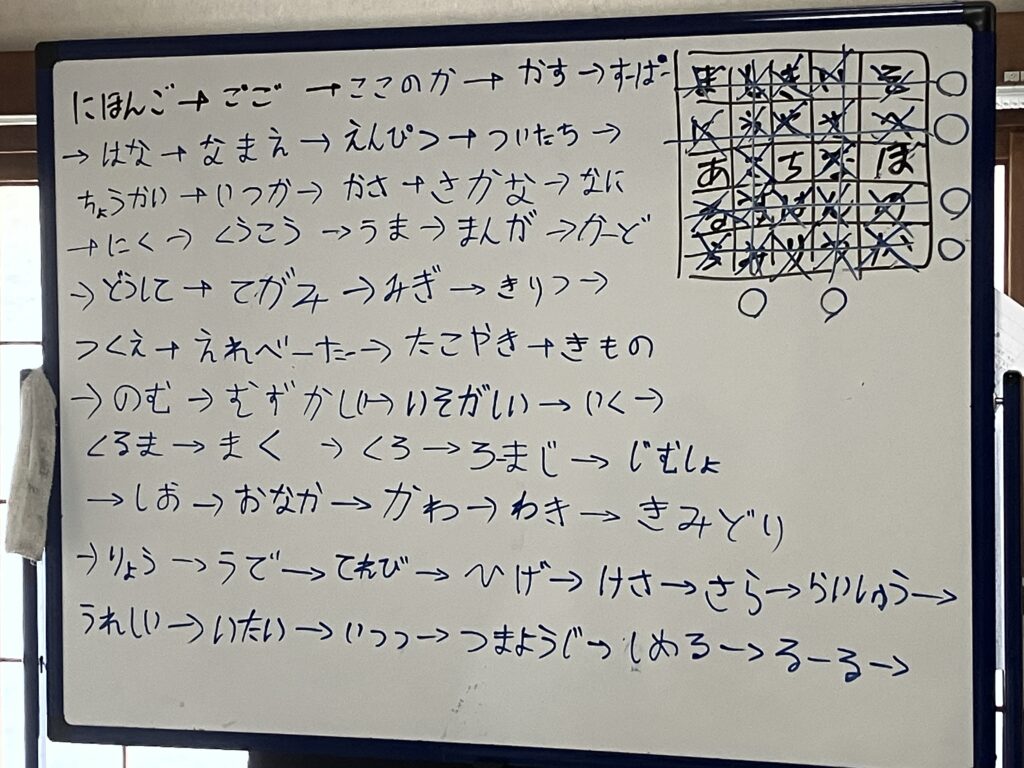 にほんご→ごご→ここのか→かす→すーぱー
→はな→なまえ→えんぴつ→ついたち→
ちょうかい→いつか→かさ→さかな→なに
→にく→くうこう→うま→まんが→かーど
→どうして→てがみ→みぎ→きりつ→
つくえ→えれべーたー→たこやき→きもの
→のむ→むずかしい→いそがしい→いく→
くるま→まく→くろ→ろーまじ→じむしょ
→しお→おなか→かわ→わき→きみどり
→りょう→うで→てれび→ひげ→けさ→さら→らいしゅう→
うれしい→いたい→いつつ→つまようじ→しめる→るーる→
あ ち ほ